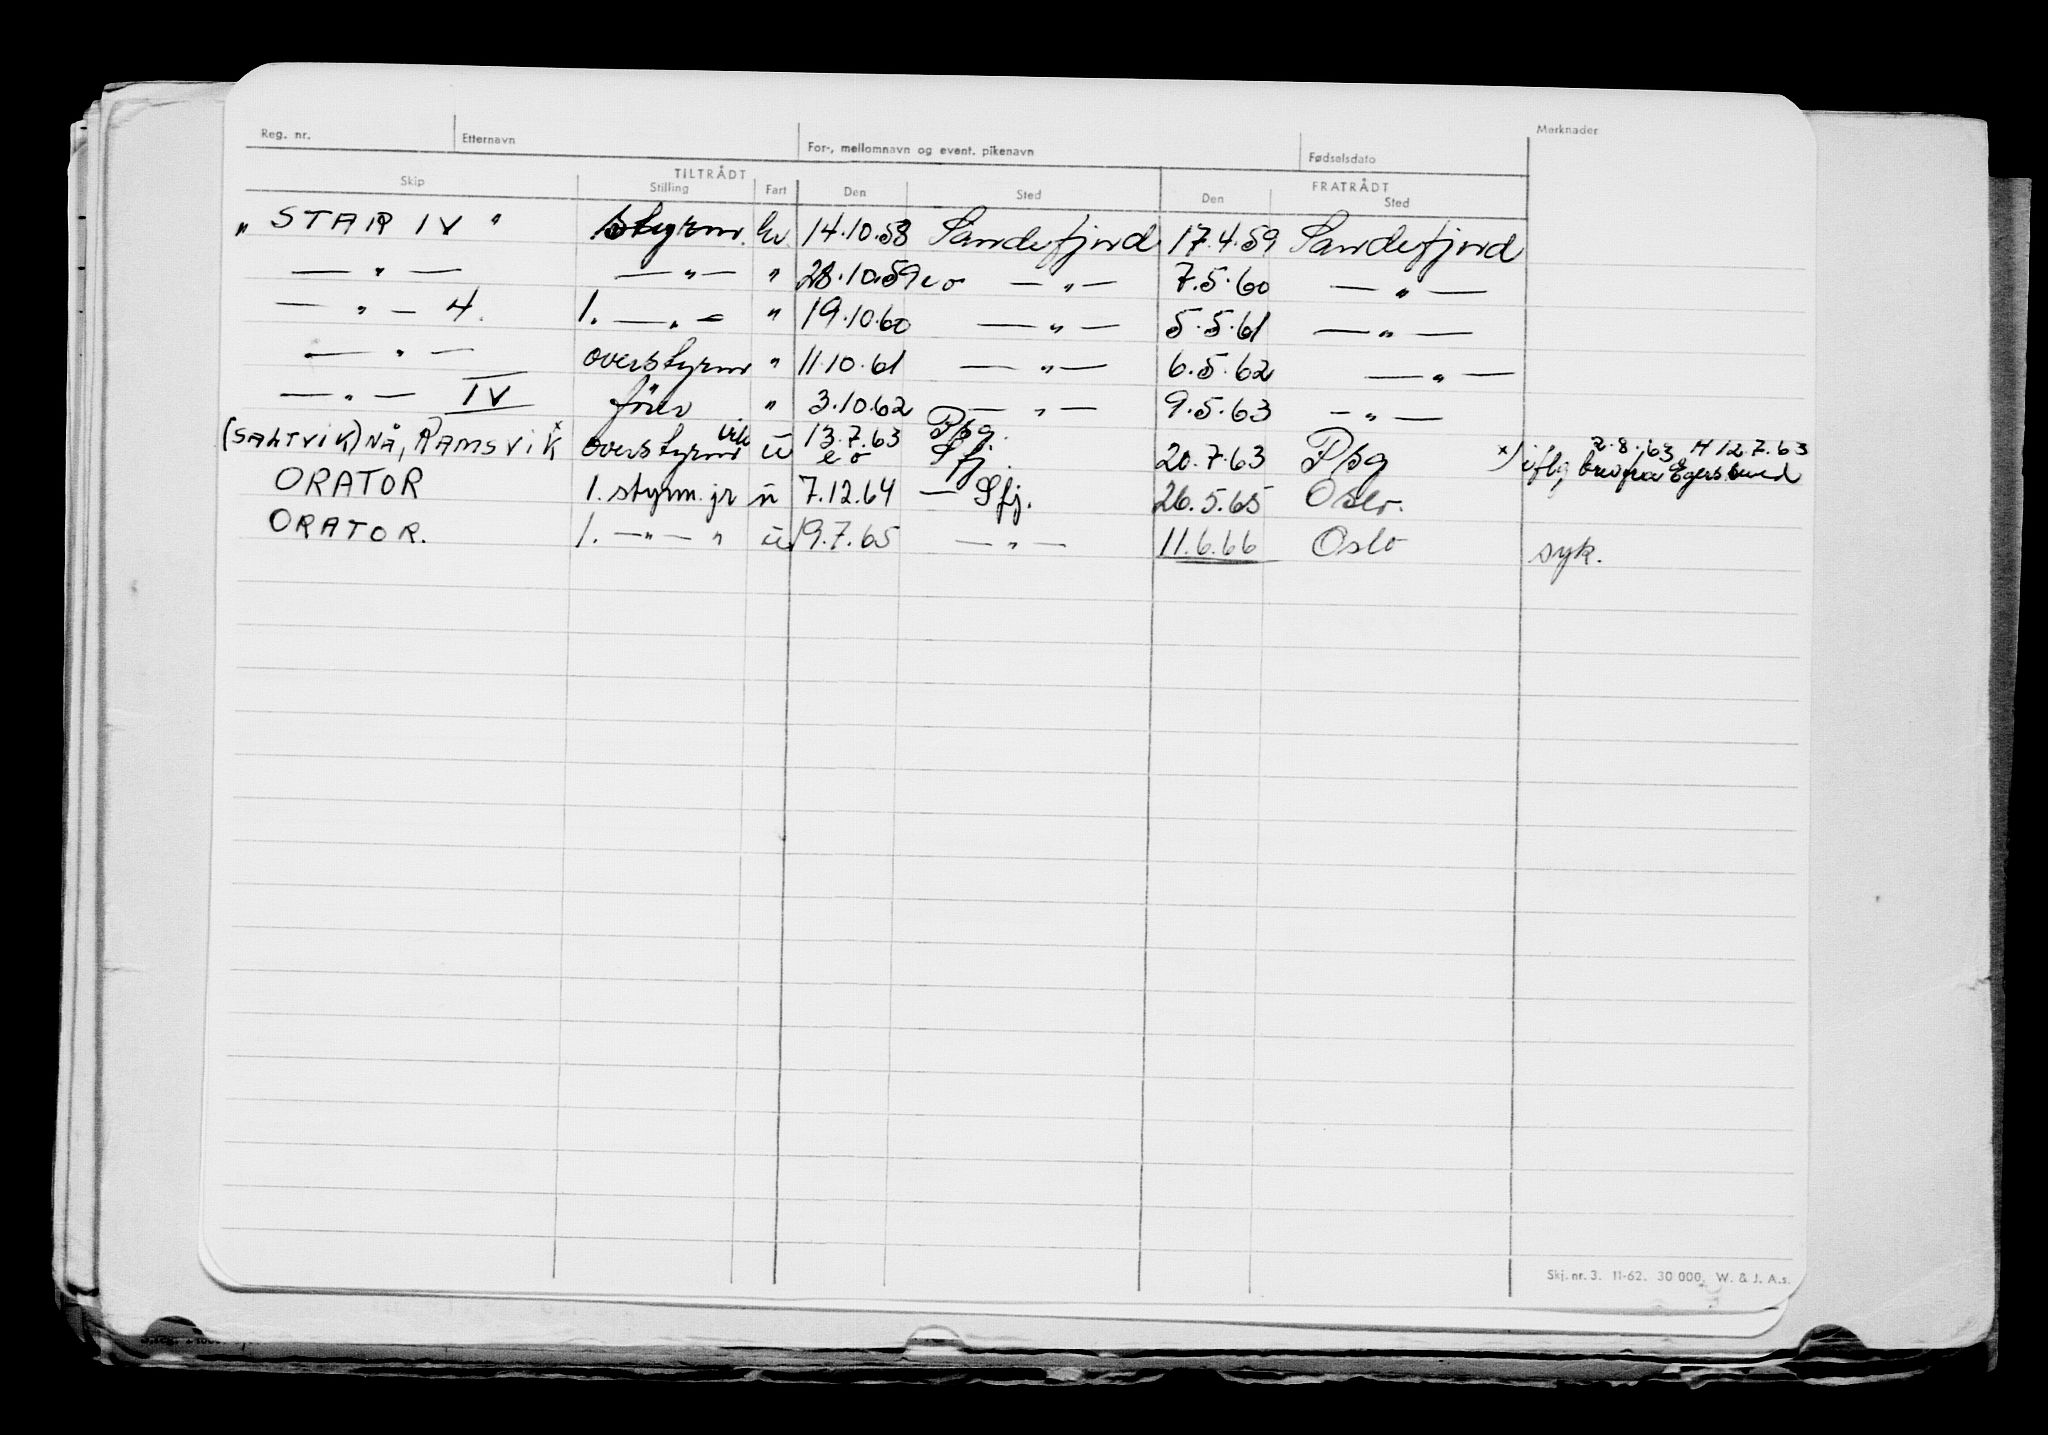 Reg. nr. Etternavn For-, mellomnavn og event. pikenavn Fødselsdato Merknader
TILTRÅDT FRATRÅDT
Skip Stilling Fart Den Sted Den Sted
" STAR IV " styrm. hv. 14.10.58 Sandefjord 17.4.59 Sandefjord
— " — — " — " 28.10.59 eo — " — 7.5.60 — " —
— " — 4. 1. — " — " 19.10.60 — " — 5.5.61 — " —
— " — overstyrm " 11.10.61 — " — 6.5.62 — " —
— " — IV fører " 3.10.62 — " — 9.5.63 — " —
(SALTVIK) NÅ, RAMSVIK x overstyrm vik u 13.7.63 Pbg. 20.7.63 Pbg x) iflg. brev fra Egersund 2.8.63
eo Sfj.
ORATOR 1. styrm. jr u 7.12.64 — Sfj. 26.5.65 Oslo.
ORATOR. 1. — " — " u 19.7.65 — " — 11.6.66 Oslo syk.
Skj. nr. 3. 11-62. 30 000. W. & J. A.s.